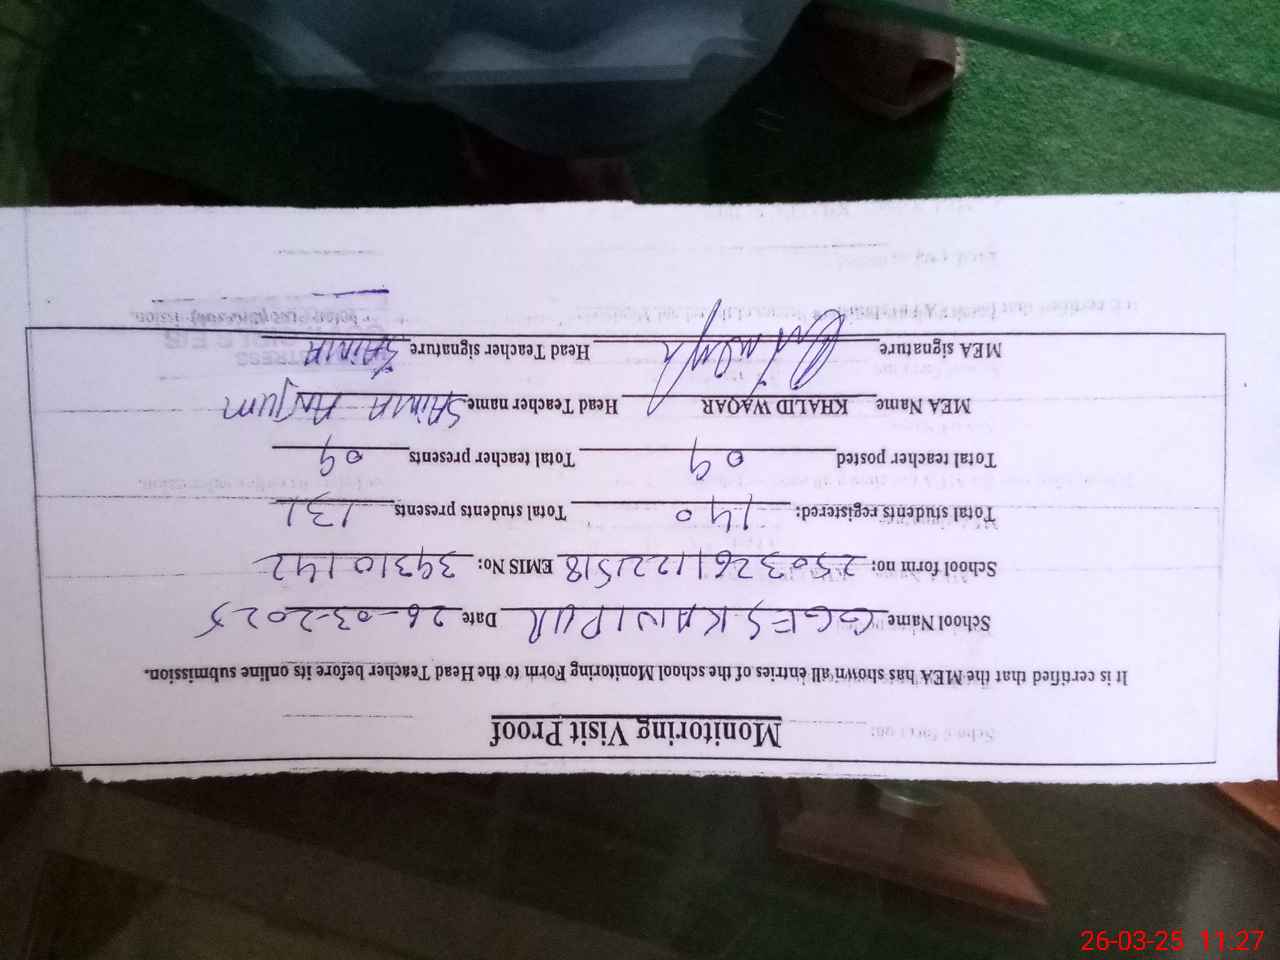 Monitoring Visit Proof
It is certified that the MEA has shown all entries of the school Monitoring Form to the Head Teacher before its online submission.
School Name GGES KANIPUR Date 26-03-2025
School form no: 25032611221518 EMIS No: 39310142
Total students registered: 140 Total students presents 131
Total teacher posted 09 Total teacher presents 09
MEA Name KHALID WAQAR Head Teacher name SAIMA ANJUM
MEA signature Head Teacher signature SAIMA
26-03-25 11:27